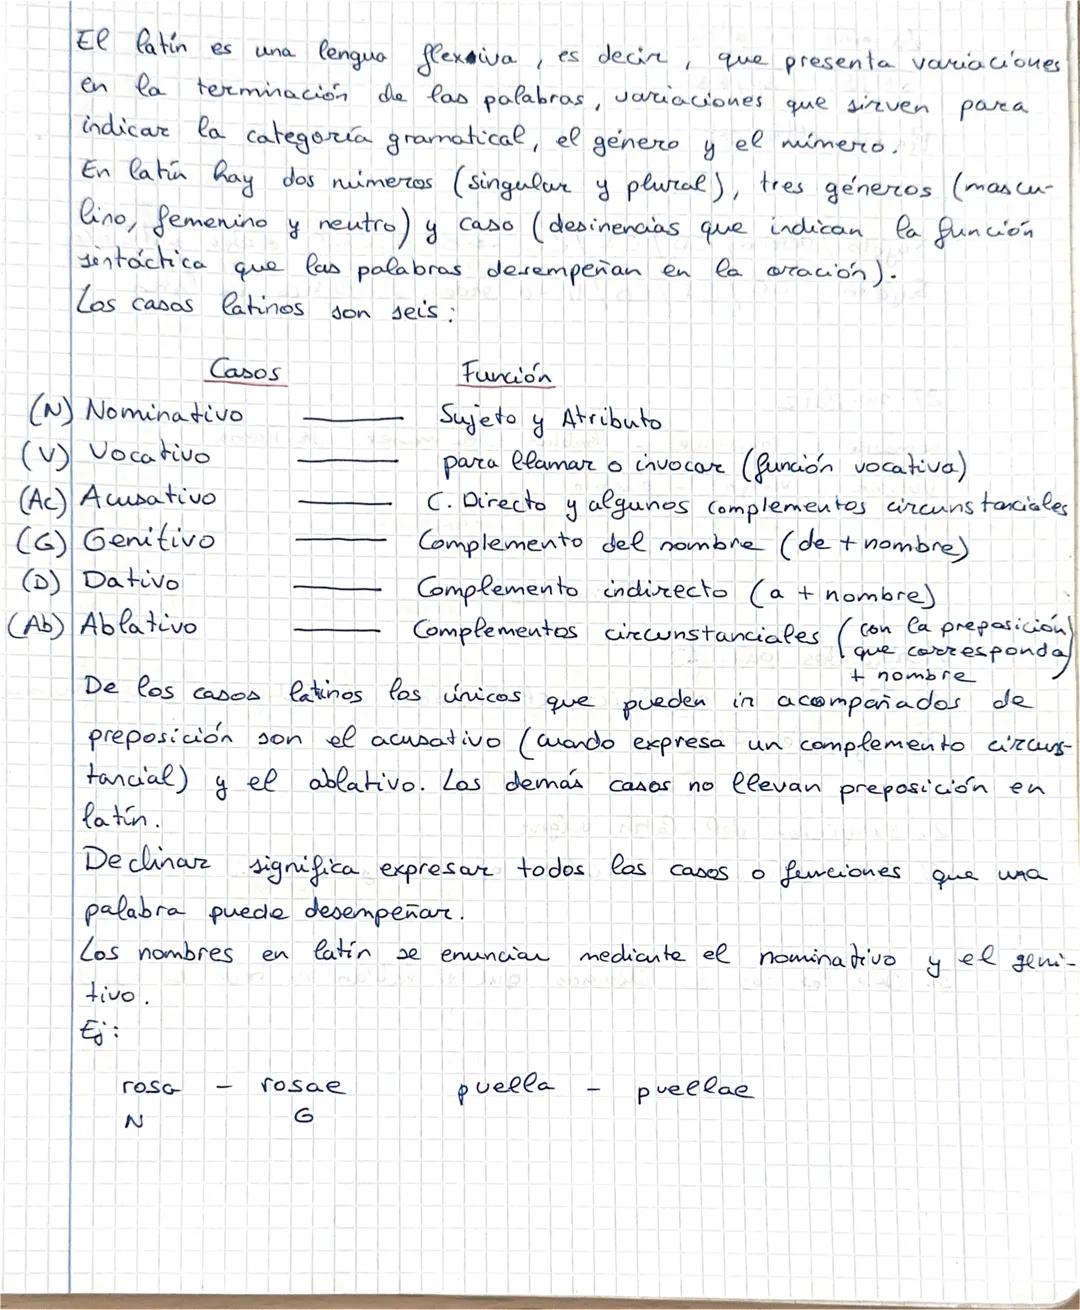 El latín es una lengua flexiva, es decir, que presenta variaciones
en la terminación de las palabras, variaciones que sirven para
indicar la categoría gramatical, el género y el número.
En latín hay dos números (singular y plural), tres géneros (mascu-
lino, femenino y neutro) y caso (desinencias que indican la función
sintáctica que las palabras desempeñan en la oración).
Los casos latinos son seis:
Casos Función
(N) Nominativo — Sujeto y Atributo
(V) Vocativo — para llamar o invocar (función vocativa)
(Ac) Acusativo — C. Directo y algunos complementos circunstanciales
(G) Genitivo — Complemento del nombre (de + nombre)
(D) Dativo — Complemento indirecto (a + nombre)
(Ab) Ablativo — Complementos circunstanciales (con la preposición
que corresponda
+ nombre)
De los casos latinos los únicos que pueden ir acompañados de
preposición son el acusativo (cuando expresa un complemento circuns-
tancial) y el ablativo. Los demás casos no llevan preposición en
latín.
Declinar significa expresar todos los casos o funciones que una
palabra puede desempeñar.
Los nombres en latín se enuncian mediante el nominativo y el geni-
tivo.
Ej:
rosa - rosae puella - puellae
N G